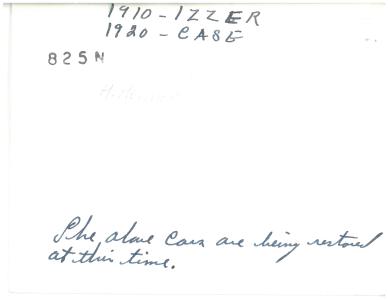 1910 - IZZER
1920 - CASE
825N
The above Cars are being restored
at this time.